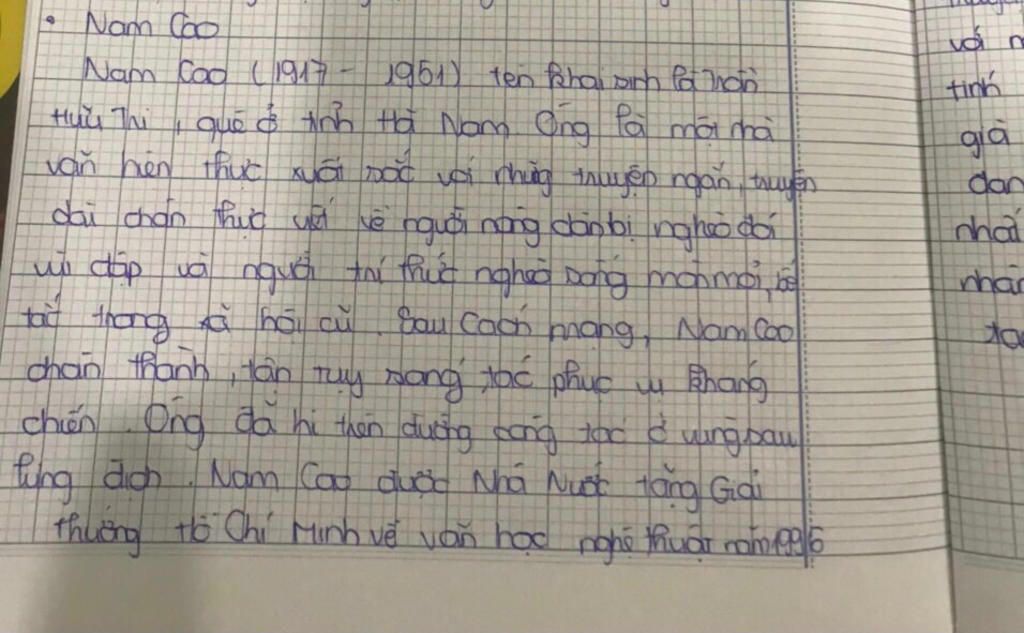 • Nam Cao
Nam Cao (1917 - 1951) tên khai sinh là Trần
Hữu Tri, quê ở tỉnh Hà Nam. Ông là một nhà
văn hiện thực xuất sắc với những truyện ngắn, truyện
dài chân thực viết về người nông dân bị nghèo đói
vùi dập và người trí thức nghèo sống mòn mỏi, bế
tắc trong xã hội cũ. Sau Cách mạng, Nam Cao
chân thành, tận tụy sáng tác phục vụ kháng
chiến. Ông đã hi sinh đường công tác ở vùng sau
lưng địch. Nam Cao được Nhà Nước tặng Giải
thưởng Hồ Chí Minh về văn học nghệ thuật năm 1996
với
tính
giả
dan
nhất
nhân